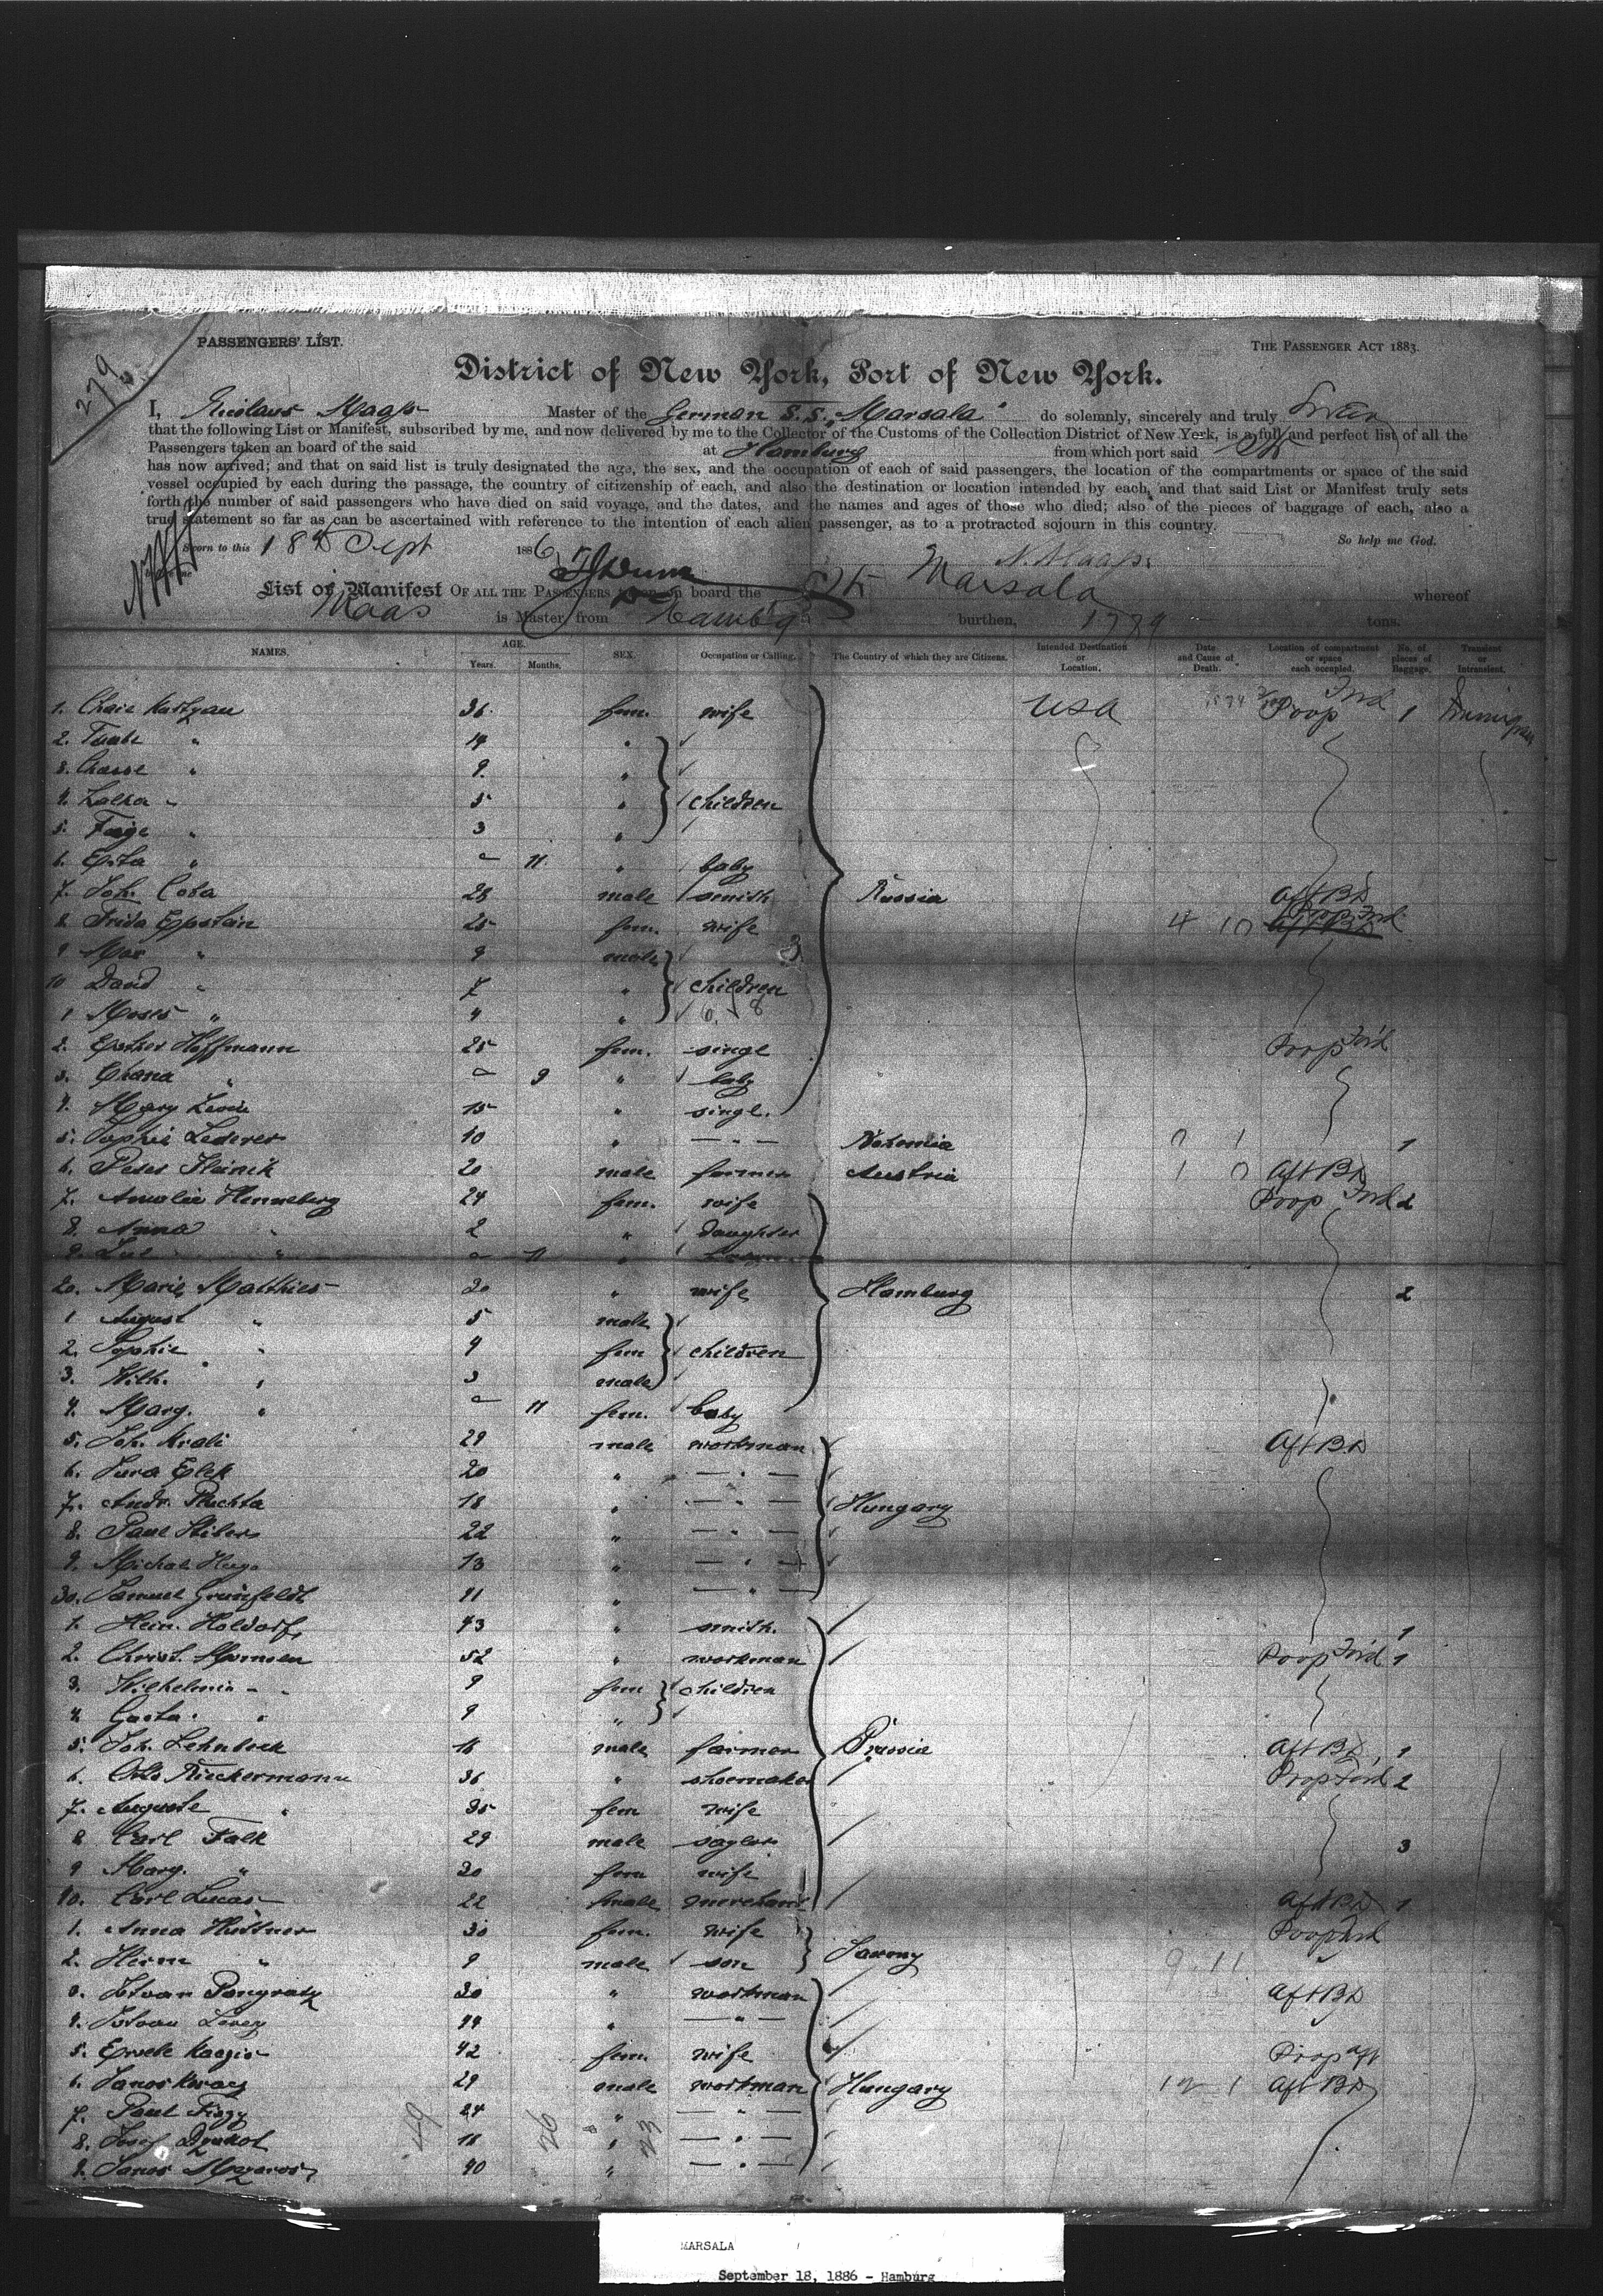 279
PASSENGERS' LIST.
THE PASSENGER ACT 1883.
District of New York, Port of New York.
I, Nicolaus Maass Master of the German S. S. "Marsala" do solemnly, sincerely and truly swear
that the following List or Manifest, subscribed by me, and now delivered by me to the Collector of the Customs of the Collection District of New York, is a full and perfect list of all the
Passengers taken an board of the said at Hamburg from which port said
has now arrived; and that on said list is truly designated the age, the sex, and the occupation of each of said passengers, the location of the compartments or space of the said
vessel occupied by each during the passage, the country of citizenship of each, and also the destination or location intended by each, and that said List or Manifest truly sets
forth the number of said passengers who have died on said voyage, and the dates, and the names and ages of those who died; also of the pieces of baggage of each, also a
true statement so far as can be ascertained with reference to the intention of each alien passenger, as to a protracted sojourn in this country.
So help me God.
Sworn to this 18th Sept 1886
N. Maass.
List or Manifest OF ALL THE PASSENGERS taken on board the Marsala whereof
Maas is Master, from Hambg burthen, 1789 tons.
NAMES. AGE. Years. Months. SEX. Occupation or Calling. The Country of which they are Citizens. Intended Destination or Location. Date and Cause of Death. Location of compartment or space each occupied. No. of pieces of Baggage. Transient or Intransient.
1. Chaie 36 fem. wife USA Poop Frd 1
2. Taube " 14 "
3. " 9. "
4. " 5 " children
5. Feige " 3 "
6. " - 11 " baby
7. Joh. Coba 28 male smith Russia Aft BD
8. Frida Eppstein 25 fem. wife 4 10 Poop Frd
9 " 9 male 3
10 David " 7 " children
1 Moses " 4 "
2. Esther Hoffmann 25 fem. singl Poop Frd
3. Chana " - 9 " baby
4. Mary Levin 15 " singl.
5. Sophie Lederer 10 " — " — Bohemia 1
6. Peter 20 male farmer Austria 1 0 Aft BD
7. Amalie Henneberg 24 fem. wife Poop Frd 2
8. Anna " 2 " daughter
9. " - 11 "
20. Marie Matthies 30 " wife Hamburg 2
1 August " 5 male
2. Sophie " 4 fem children
3. Wilh. " 3 male
4. Marg. " - 11 fem. baby
5. Joh. Krali 29 male workman Aft BD
6. Jura Elek 20 " — " —
7. Andr. Plachta 18 " — " — Hungary
8. Paul 22 " — " —
9. Michal 13 " — " —
30. Samuel Grünfeldt 11 " — " —
1. Hein. Holdorf 43 " smith. 1
2. Christ. Mommsen 52 " workman Poop Frd 1
3. Wilhelmin " 9 fem children
4. " 9 "
5. Joh. Lehnbeck male farmer Prussia Aft BD 1
6. Otto Rieckermann 36 " shoemaker Poop Frd 2
7. Auguste " 35 fem wife
8 Carl Falk 29 male saylor 3
9 Marg. " 30 fem wife
40. Carl Lucas 22 male merchant Aft BD 1
1. Anna Hüttner 30 fem. wife Poop Frd
2. Herm " 9 male son Saxony 9 11
3. Istvan Pongratz 30 " workman Aft BD
4. Istvan 44 " — " —
5. 42 fem. wife Poop aft
6. Janos 29 male workman Hungary 12 1 Aft BD
7. Paul 24 " — " —
8. Josef " — " —
9. Janos 40 " — " —
49 26 23
MARSALA
September 18, 1886 - Hamburg